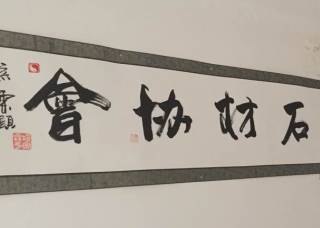 石材協會